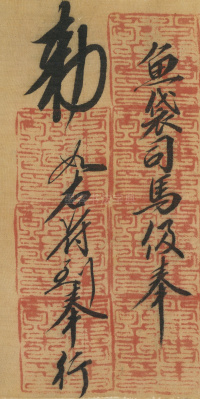 魚袋司馬伋奉
勅
如右符到奉行